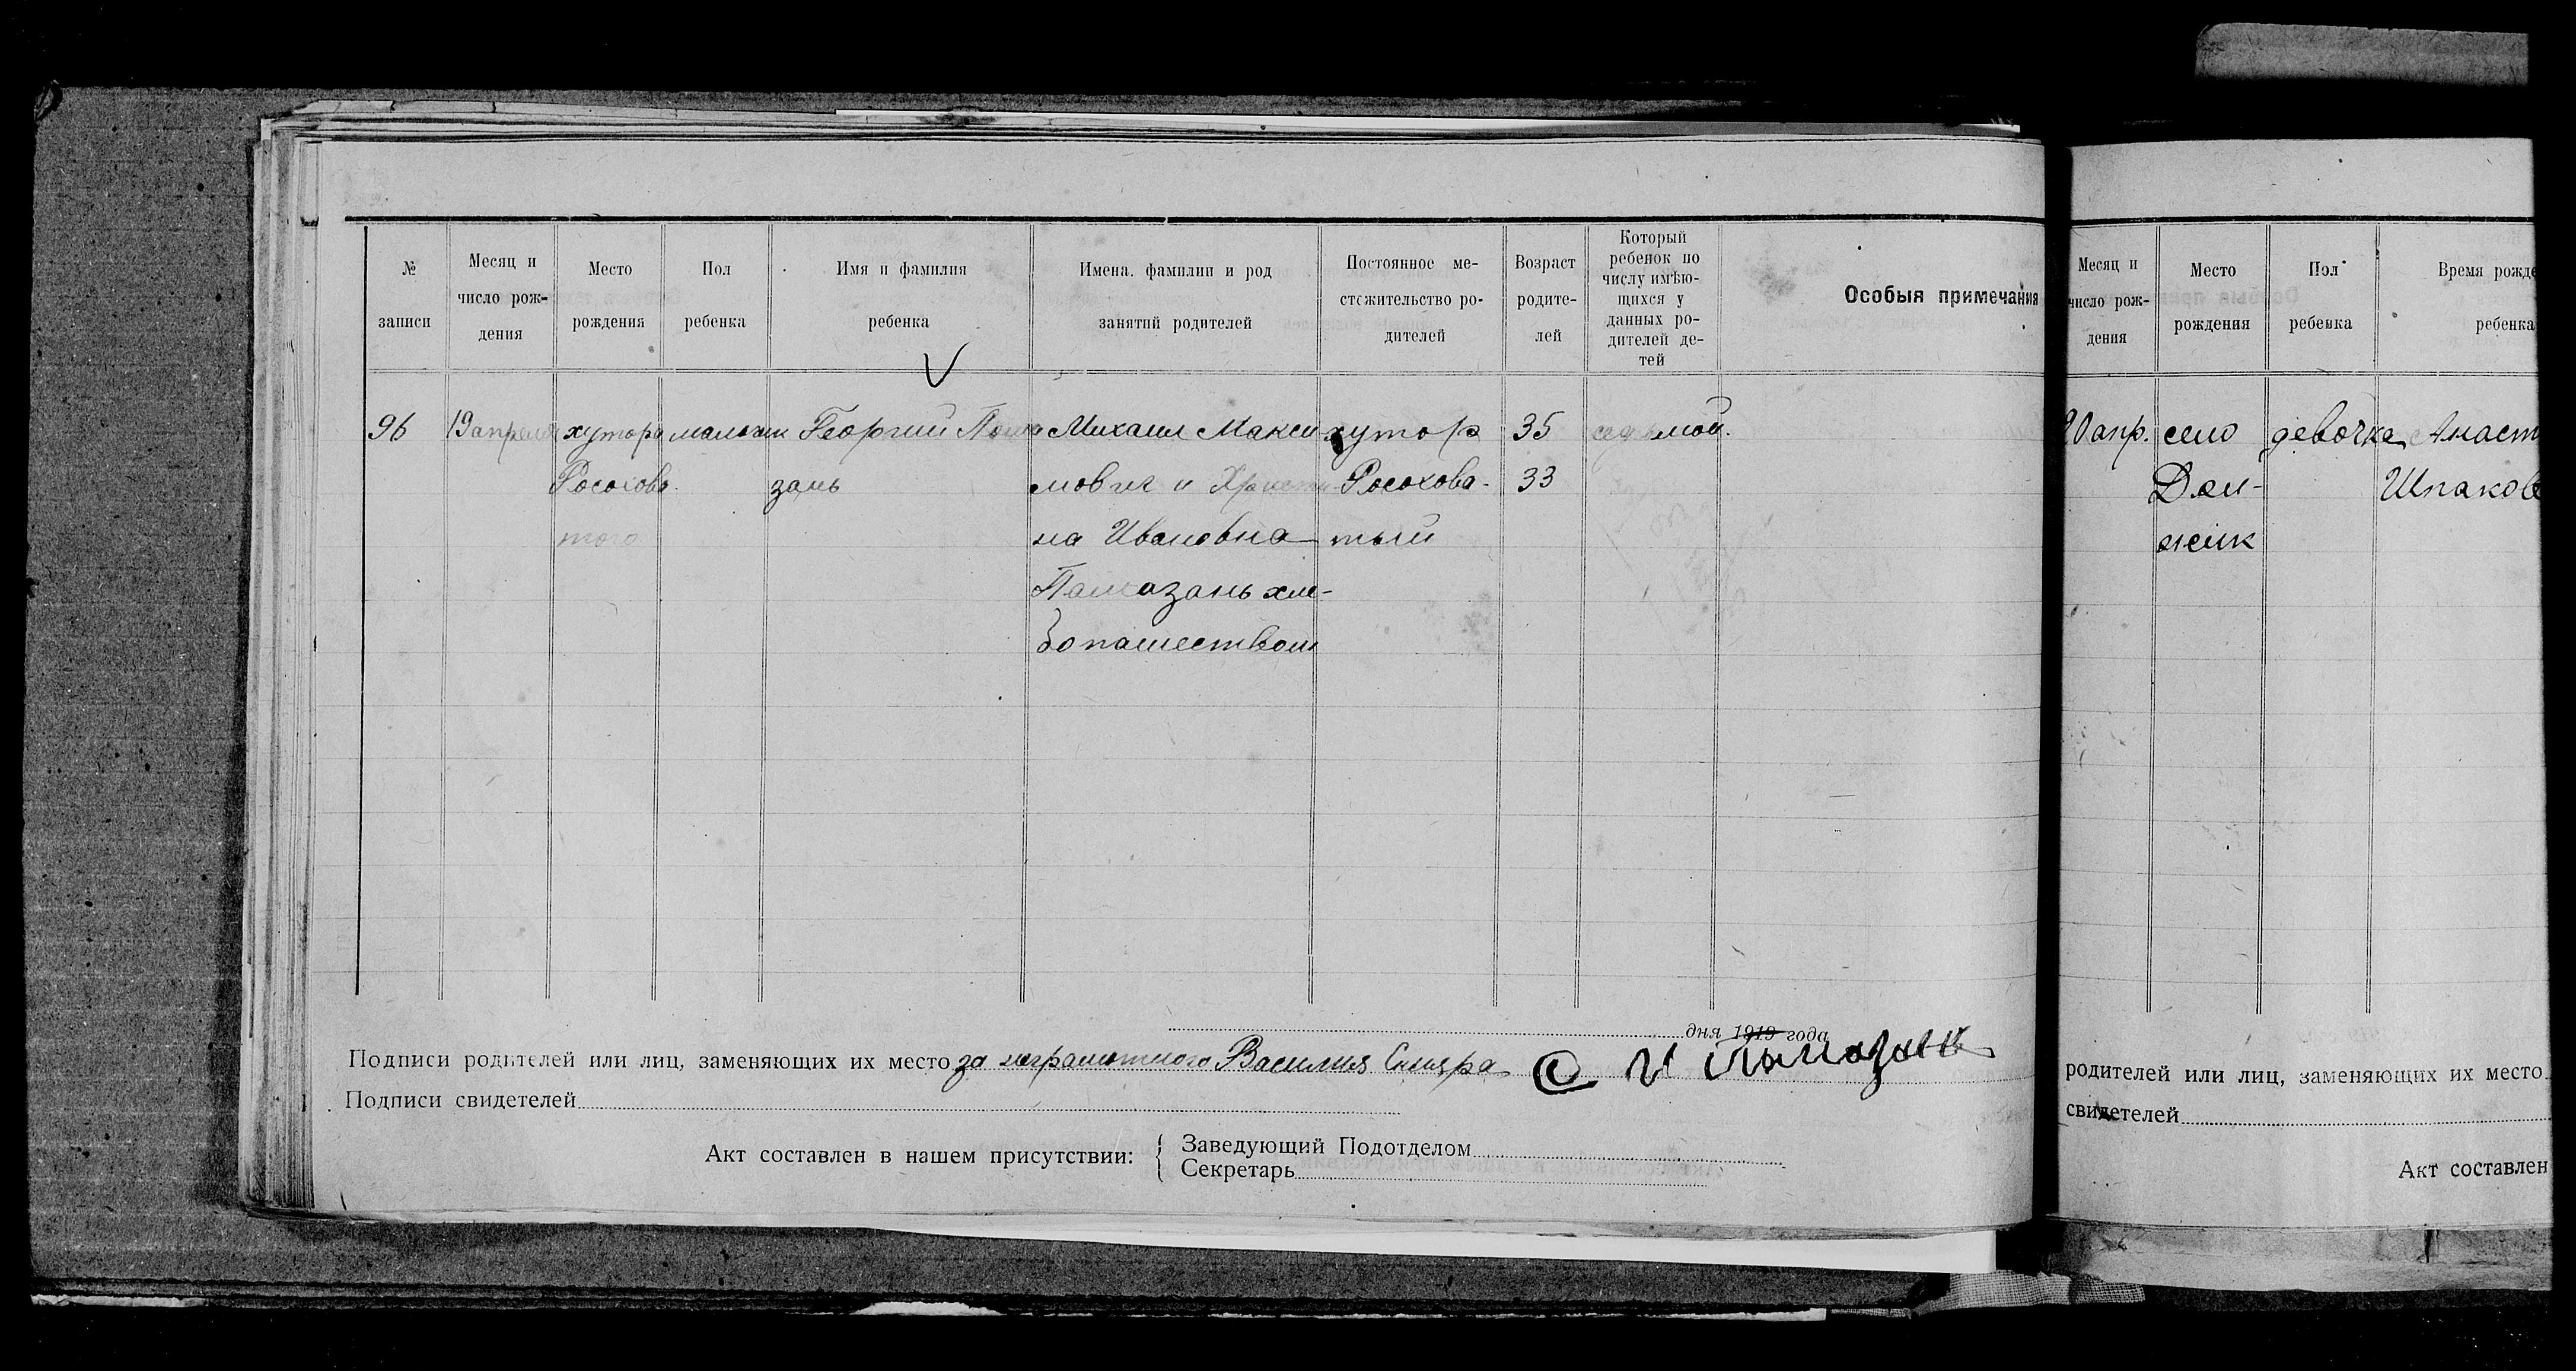 № записи
Месяц и число рождения
Место рождения
Пол ребенка
Имя и фамилия ребенка
Имена, фамилии и род занятий родителей
Постоянное местожительство родителей
Возраст родителей
Который ребенок по числу имѣющихся у данных родителей детей
Особыя примечания
96 19 апреля хутора мальчик Георгий Михаил Макси хутор 35 седьмой.
Росохова зань мович и Христи Росохова- 33
того на Ивановна тый
Памазань хле-
бопашеством
дня 1919 года
Подписи родителей или лиц, заменяющих их место за неграмотного Василия
Подписи свидетелей
Акт составлен в нашем присутствии:
Заведующий Подотделом
Секретарь
Месяц и число рождения
Место рождения
Пол ребенка
Время рожде
ребенка
апр. село девочка Анаст
Дол- Шпаков
жик
родителей или лиц, заменяющих их место
свидетелей
Акт составлен